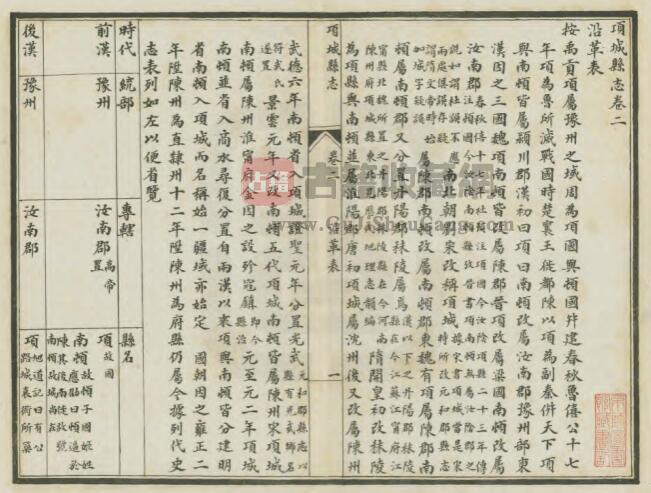 項城縣志卷二
沿革表
按禹貢項屬豫州之域周為項國與頓國幷建春秋魯僖公十七
年項為魯所滅戰國時楚襄王徙都陳以項為副秦併天下項
與南頓皆屬潁川郡漢初曰項曰南頓改屬汝南郡豫州部東
漢因之三國魏項南頓皆改屬陳郡晉項改屬梁國南頓改屬
汝南郡
南北朝劉宋改稱項城
屬陳郡南頓改屬南頓郡東魏有項屬陳郡南
頓屬南頓郡又分置丹陽郡秣陵屬焉
隋開皇初改秣陵
為項縣與南頓並屬淮陽郡唐初項城屬沈州後又改屬陳州
項城縣志
卷二
沿革表
一
武德六年南頓省入項城證聖元年分置光武
景雲元年又改南頓五代項城南頓皆屬陳州宋項城
南頓屬陳州淮寧府金因之設殄寇鎮
元至元二年項城
南頓並省入商水尋復分置自兩漢以來項與南頓皆分建明
省南頓入項城而名稱始一疆域亦始定 國朝因之雍正二
年陞陳州為直隸州十二年陞陳州為府縣仍屬今據列代史
志表列如左以便省覽
時代 統部 專轄 縣名
前漢 豫州 汝南郡高帝置 項故國
南頓故頓子國姬姓
應劭曰頓迫於
陳其後南徙故號
南頓故城尚在
後漢 豫州 汝南郡 項地道記曰有公
路城袁術所築
古籍
古籍收藏網
www.GuJiShouCang.com